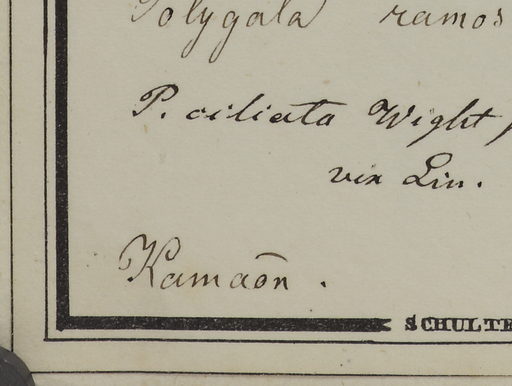 Polygala ramos
P. ciliata Wight
vix Lin.
Kamaōn.
SCHULTE